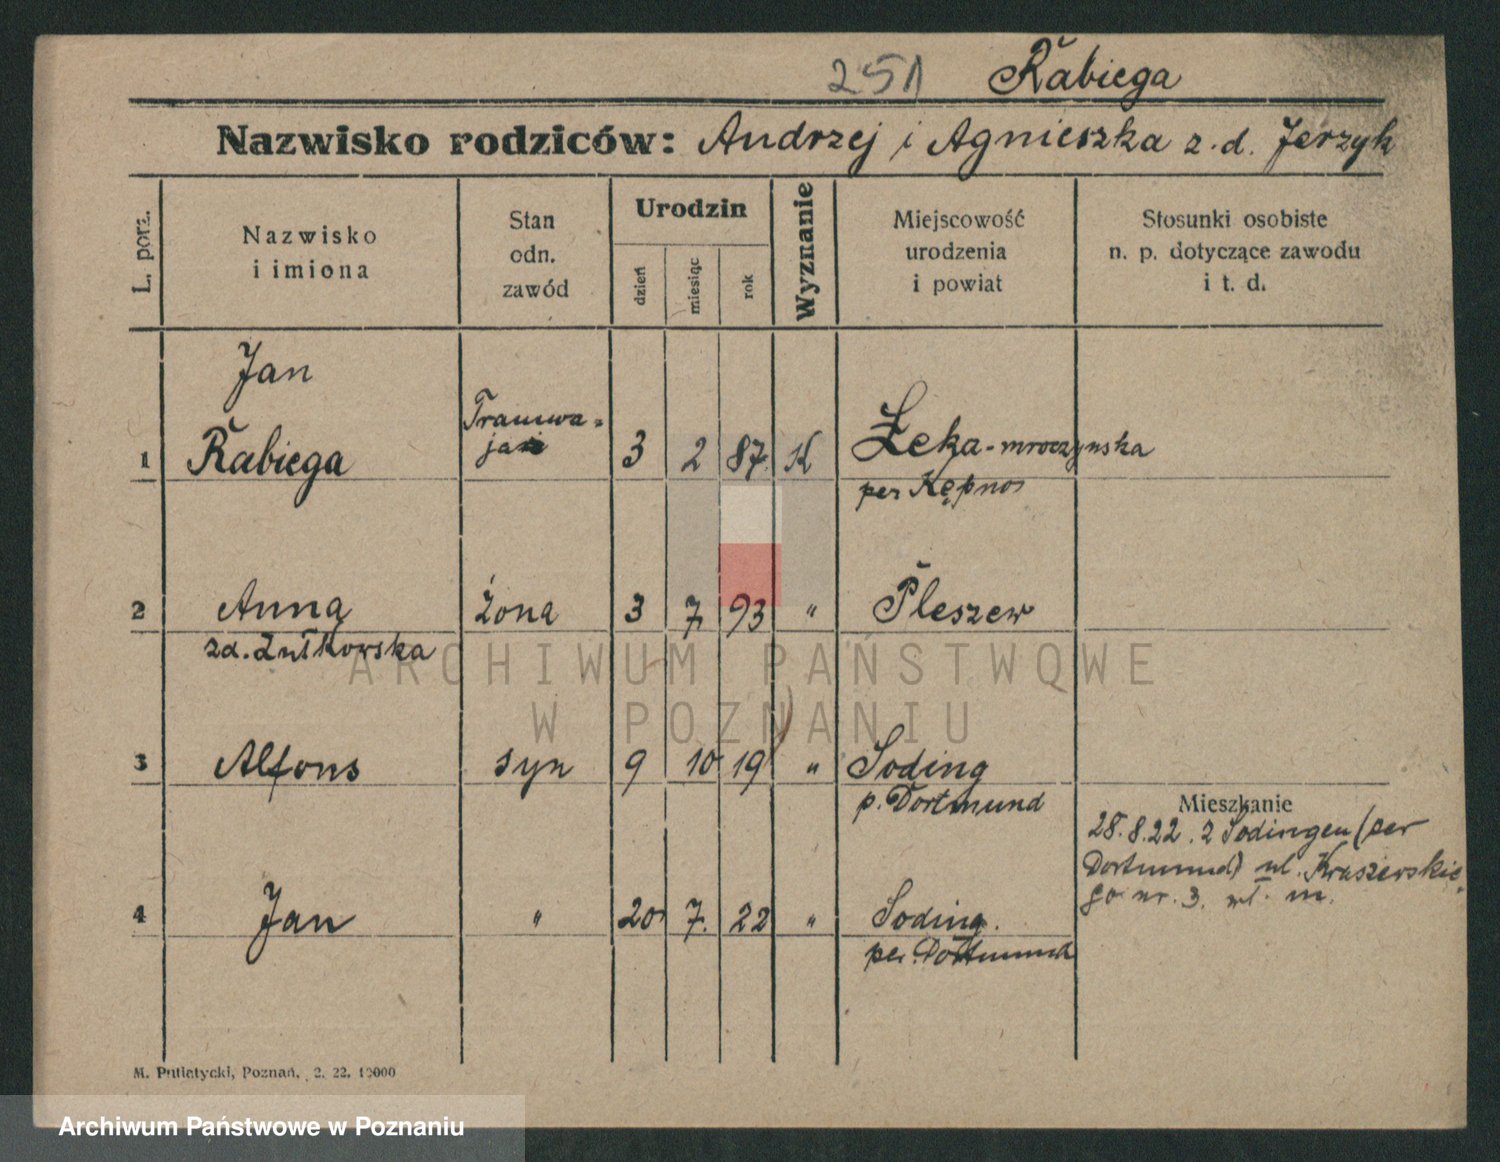 251 Rabiega
Nazwisko rodziców: Andrzej i Agnieszka z.d. Jerzyk
L. porz.
Nazwisko
i imiona
Stan
odn.
zawód
Urodzin
dzień
miesiąc
rok
Wyznanie
Miejscowość
urodzenia
i powiat
Stosunki osobiste
n. p. dotyczące zawodu
i t. d.
Jan
1 Rabiega Tramwa-
jarz 3 2 87. K Łęka-mroczyńska
per Kępno
2 Anna żona 3 7. 93 " Pleszew
zd. Żułkowska
3 Alfons syn 9 10 19 " Soding
p. Dortmund
Mieszkanie
28.8.22. z Sodingen (per
Dortmund) ul. Kraszewskie
go nr. 3. wł. m.
4 Jan " 20 7. 22 " Soding.
per. Dortmund
M. Putiatycki, Poznań. 2. 22. 10000
ARCHIWUM PAŃSTWOWE
W POZNANIU
Archiwum Państwowe w Poznaniu